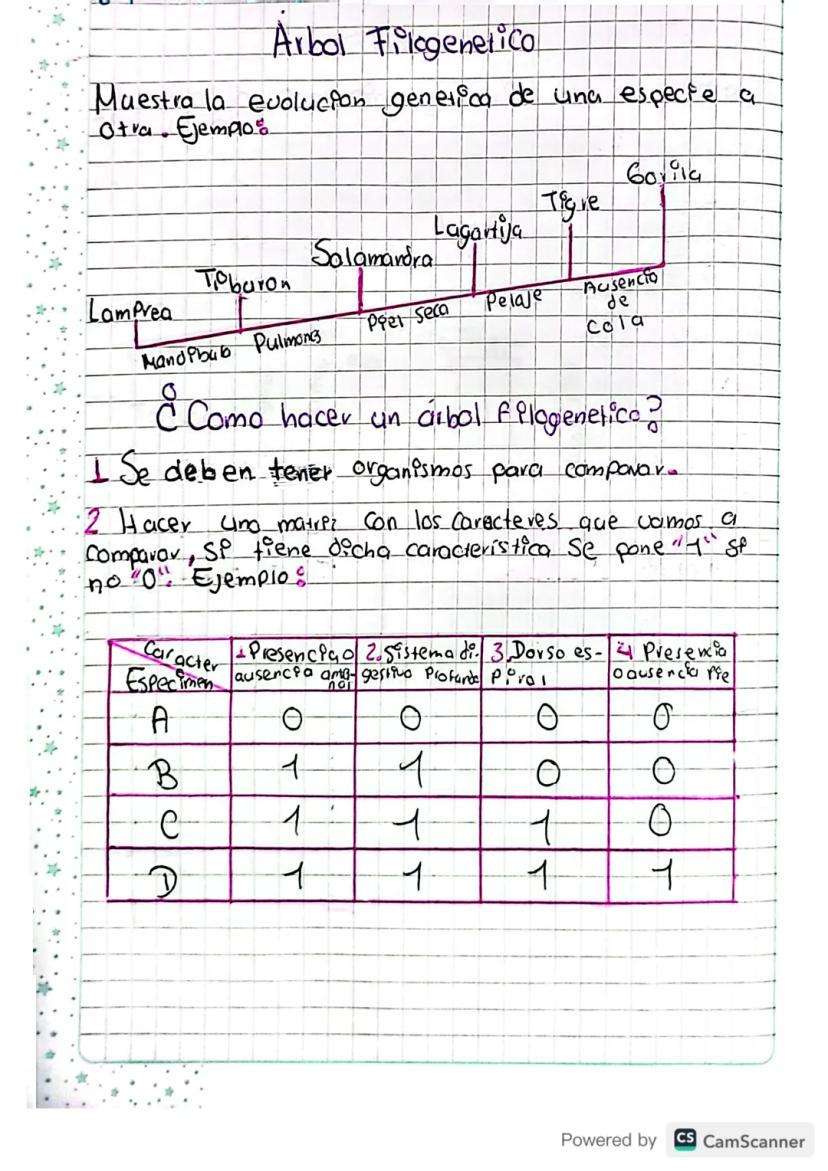 Árbol Filogenetico
Muestra la evolucion genetica de una especie a
otra. Ejemplo:
Gorila
Tigre
Lagartija
Salamandra
Tiburon
Lamprea
Mandibula
Pulmones
Piel seca
Pelaje
Ausencia
de
cola
¿Como hacer un árbol filogenetico?
1 Se deben tener organismos para comparar.
2 Hacer una matriz con los caracteres que vamos a
comparar, si tiene dicha característica se pone "1" si
no "0". Ejemplo:
Caracter
Especimen
1. Presencia o
ausencia
2. Sistema di-
gestivo Profundo
3. Dorso es-
piral
4 Presencia
o ausencia Pie
A 0 0 0 0
B 1 1 0 0
C 1 1 1 0
D 1 1 1 1
Powered by CS CamScanner